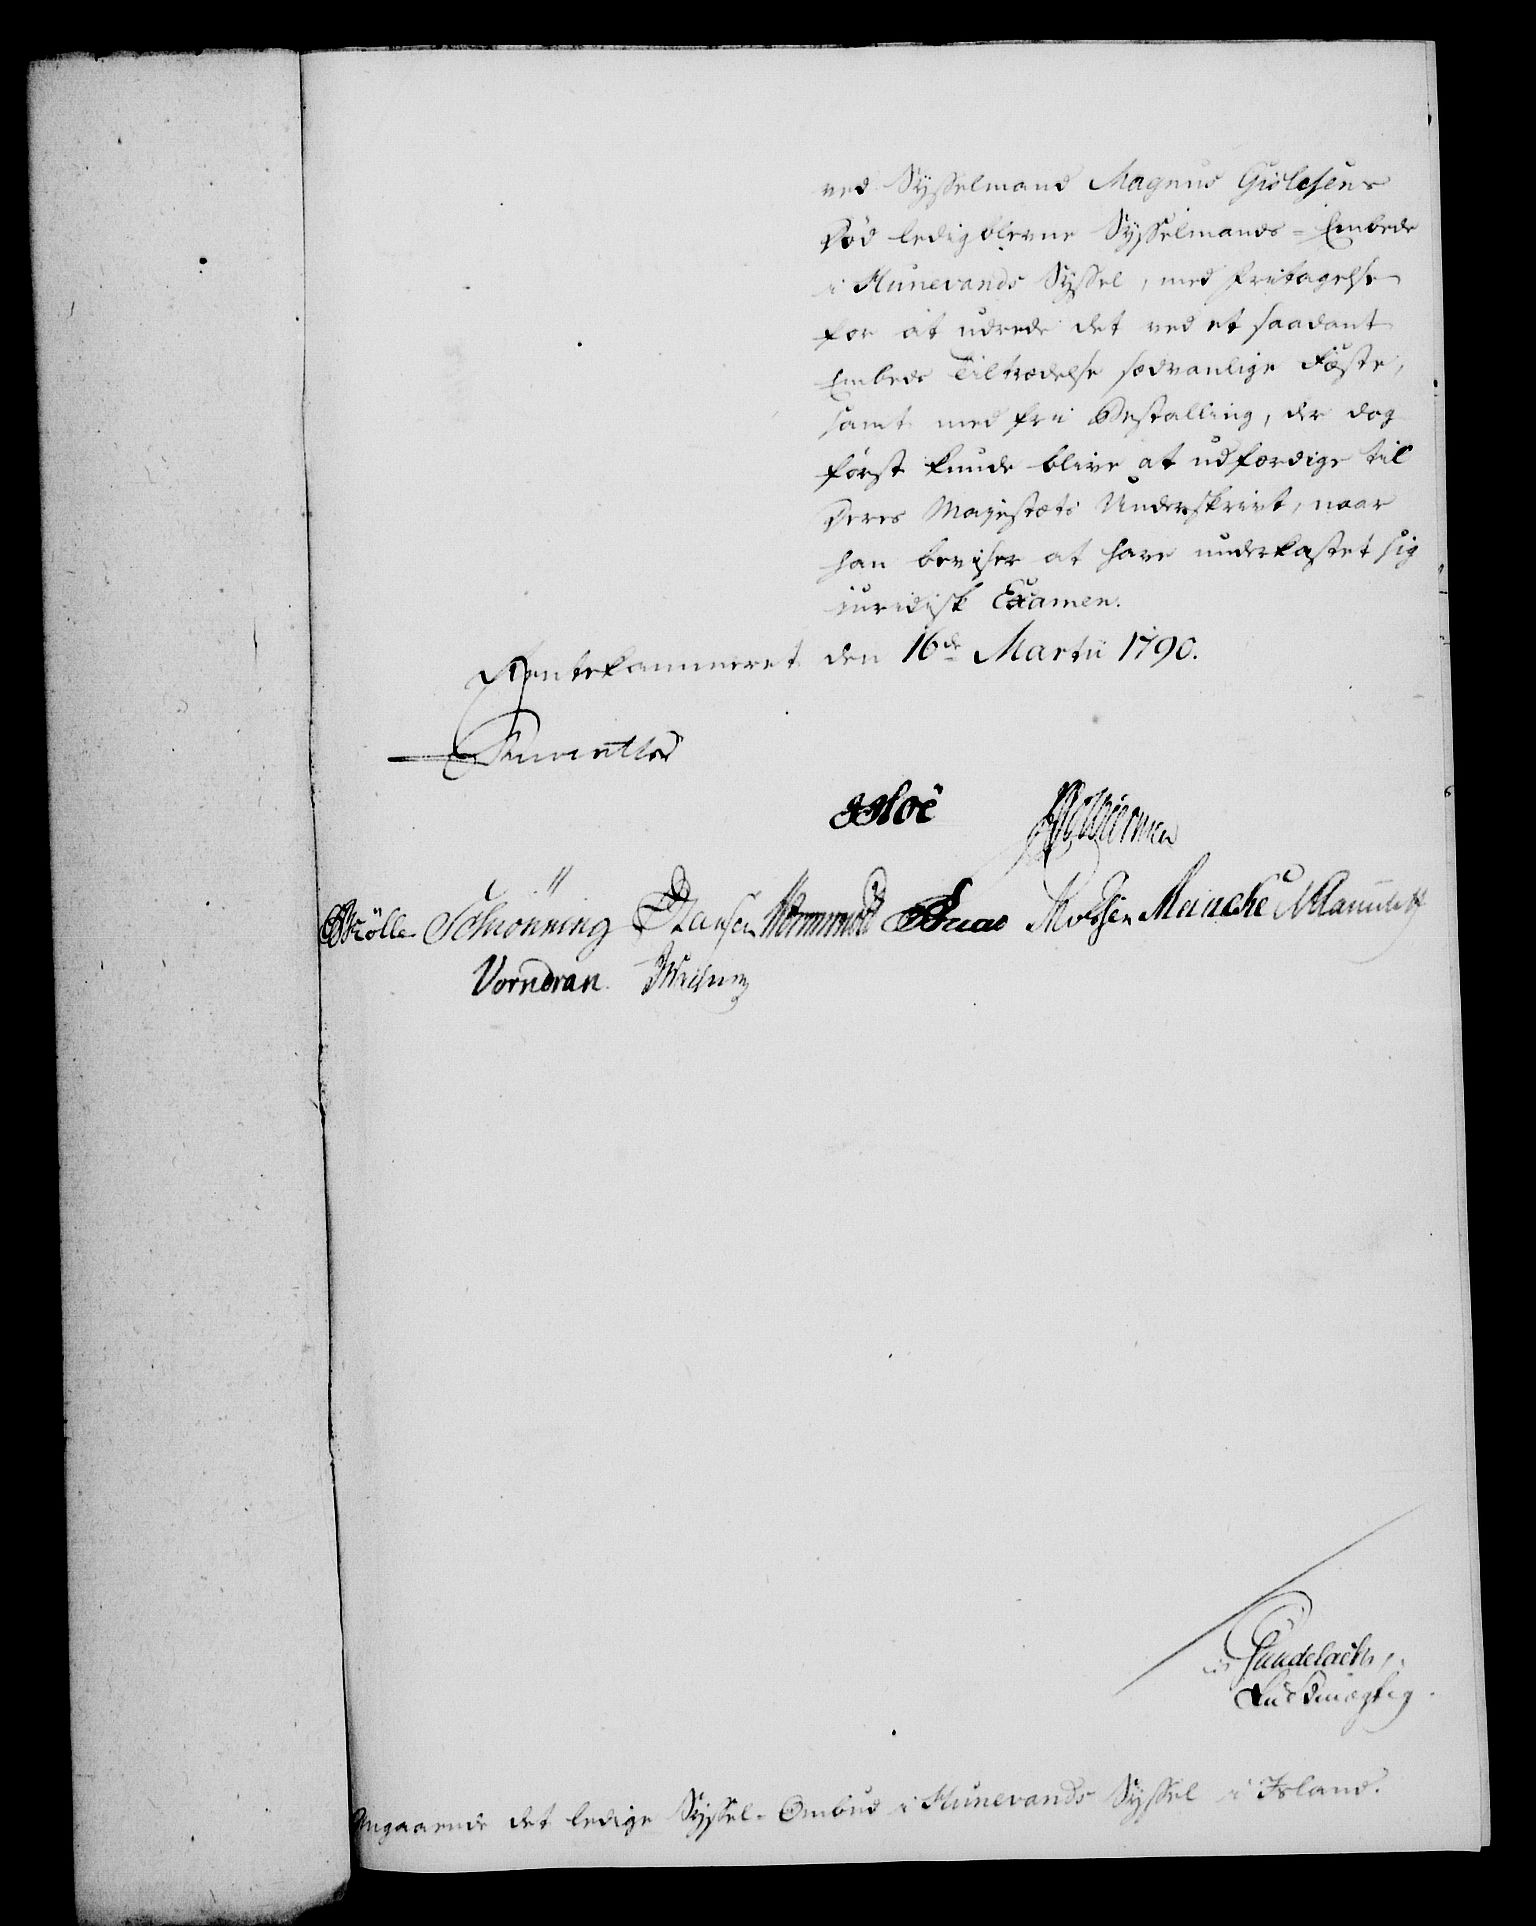 ved Sysselmand Magnus Gislesens
Død ledigblevne Sysselmands-Embede
i Hunevands Syssel, med Fritagelse
for at udrede det ved et saadant
Embeds Tiltrædelse sædvanlige Fæste,
samt med fri Bestalling, der dog
først kunde blive at udfærdige til
Deres Majestæts Underskrivt, naar
han beviser at have underkastet sig
juridisk Examen.
Rentekammeret den 16de Martii 1790.
Reventlow
Hoë
Schiønning Hansen Wormskiold Meincke
Vorndran.
Gundelach,
Fuldmægtig.
Angaaende det ledige Syssel-Ombud i Hunevands Syssel i Island.